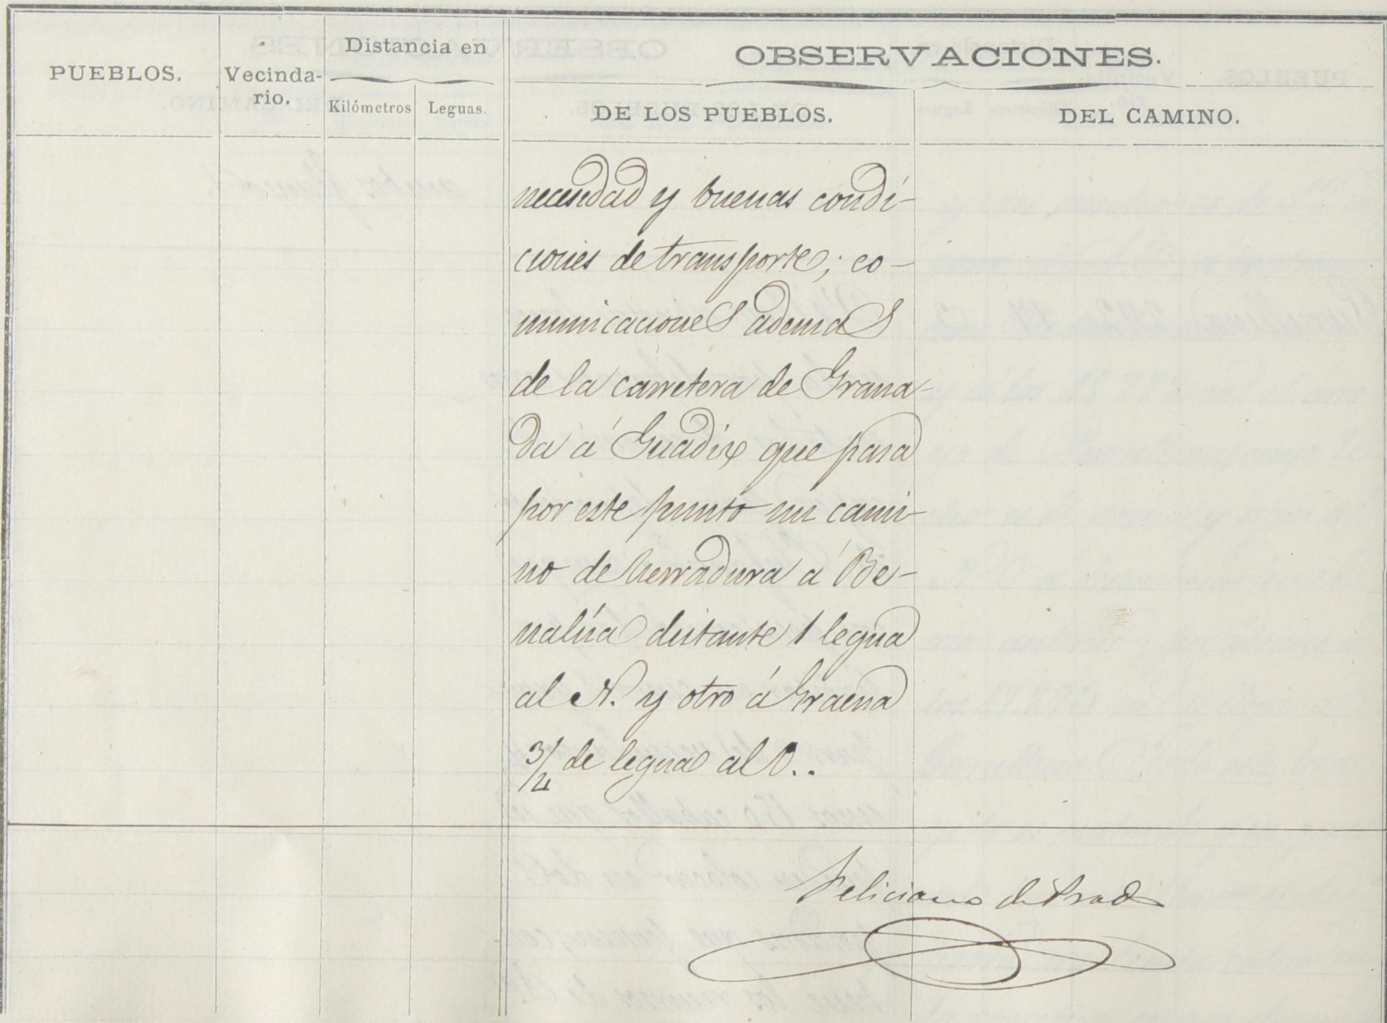 PUEBLOS.
Vecinda-
rio.
Distancia en
Kilómetros
Leguas.
OBSERVACIONES.
DE LOS PUEBLOS.
DEL CAMINO.
necesidad y buenas condi-
ciones de transporte; co-
municaciones ademas
de la carretera de Grana-
da á Guadix que pasa
por este punto un cami-
no de herradura á Be-
nalúa distante 1 legua
al N. y otro á Graena
3/4 de legua al O..
Feliciano de Prado